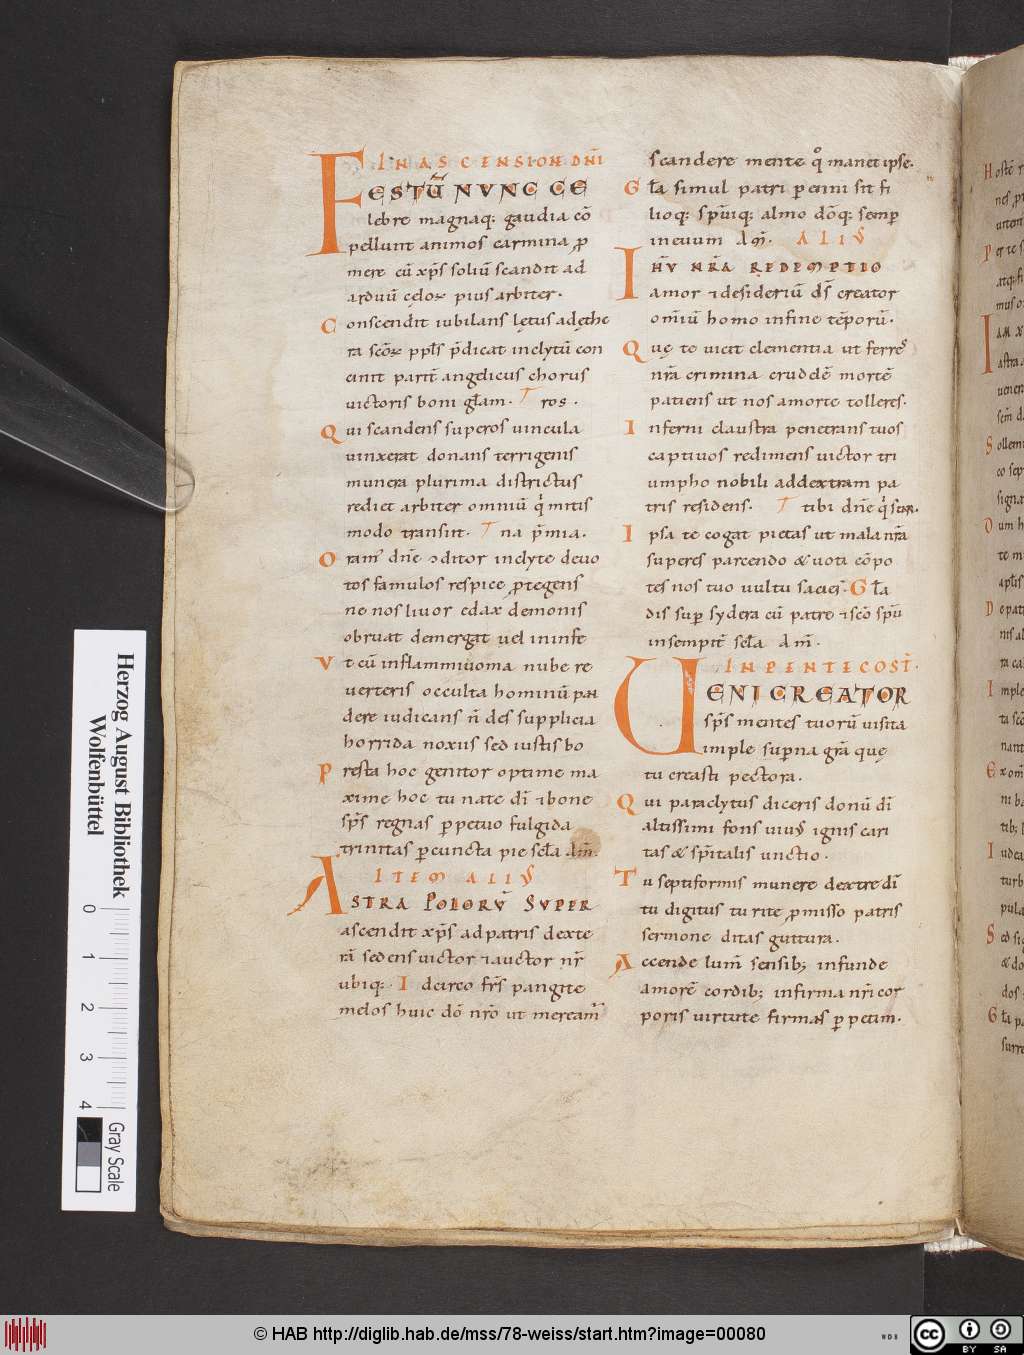 IN ASCENSION DNI
FESTŪ NVNC CE
lebre magnaq; gaudia cō
pellunt animos carmina p̄
mere cū xp̄s soliū scandit ad
arduū celoꝝ pius arbiter.
Conscendit iubilans lętus adęthe
ra scōꝝ pp̄ls p̄dicat inclytū con
cinit parit̄ angelicus chorus
uictoris boni gl̄am. Tros.
Qui scandens superos uincula
uinxerat donans terrigenis
munera plurima districtus
rediet arbiter omniū q̄ mitis
modo transiit. Tna p̄mia.
Oram' dn̄e ↄditor inclyte deuo
tos famulos respice ꝓtegens
ne nos liuor edax demonis
obruat demergat uel in infe
Vt cū inflammiuoma nube re
uerteris occulta hominū pan
dere iudicans n̄ des supplicia
horrida noxiis sed iustis bo
Presta hoc genitor optime ma
xime hoc tu nate dī ⁊bone
sp̄s regnas ꝑpetuo fulgida
trinitas ꝑcuncta pie sc̄la am̄.
ITEM ALIVS
ASTRA POLORV̄ SVPER
ascendit xp̄s ad patris dexte
rā sedens uictor ⁊auctor nr̄
ubiq;. Idcirco frs̄ pangite
melos huic dō nr̄o ut meream̄
scandere mente q̊ manet ipse.
Gl̄a simul patri ꝑenni sit fi
lioq; sp̄uiq; almo dōq; semꝑ
in euum Am̄. ALIVS
IHV̄ NR̄A REDEMPTIO
amor ⁊desideriū ds̄ creator
om̄iū homo in fine tēporū.
Quę te uicit clementia ut ferres
nr̄a crimina crudelē mortē
patiens ut nos a morte tolleres.
Inferni claustra penetrans tuos
captiuos redimens uictor tri
umpho nobili ad dextram pa
tris residens. T tibi dn̄e
Ipsa te cogat pietas ut mala nr̄a
superes parcendo & uoti cōpo
tes nos tuo uultu sacies. Gl̄a
dis suꝑ sydera cū patre ⁊scō sp̄u
in sempit̄ sc̄la Am̄.
IN PENTECOST̄.
VENI CREATOR
sp̄s mentes tuorū uisita
imple suꝑna gr̄a quę
tu creasti pectora.
Qui paraclytus diceris donū dī
altissimi fons uiuus ignis cari
tas & sp̄italis unctio.
Tu septiformis munere dextre dī
tu digitus tu rite ꝓmisso patris
sermone ditas guttura.
Accende lum̄ sensib; infunde
amorē cordib; infirma nr̄i cor
poris uirtute firmans ꝑpetim.
Herzog August Bibliothek
Wolfenbüttel
0 1 2 3 4
Gray Scale
© HAB http://diglib.hab.de/mss/78-weiss/start.htm?image=00080
WDB
cc BY SA